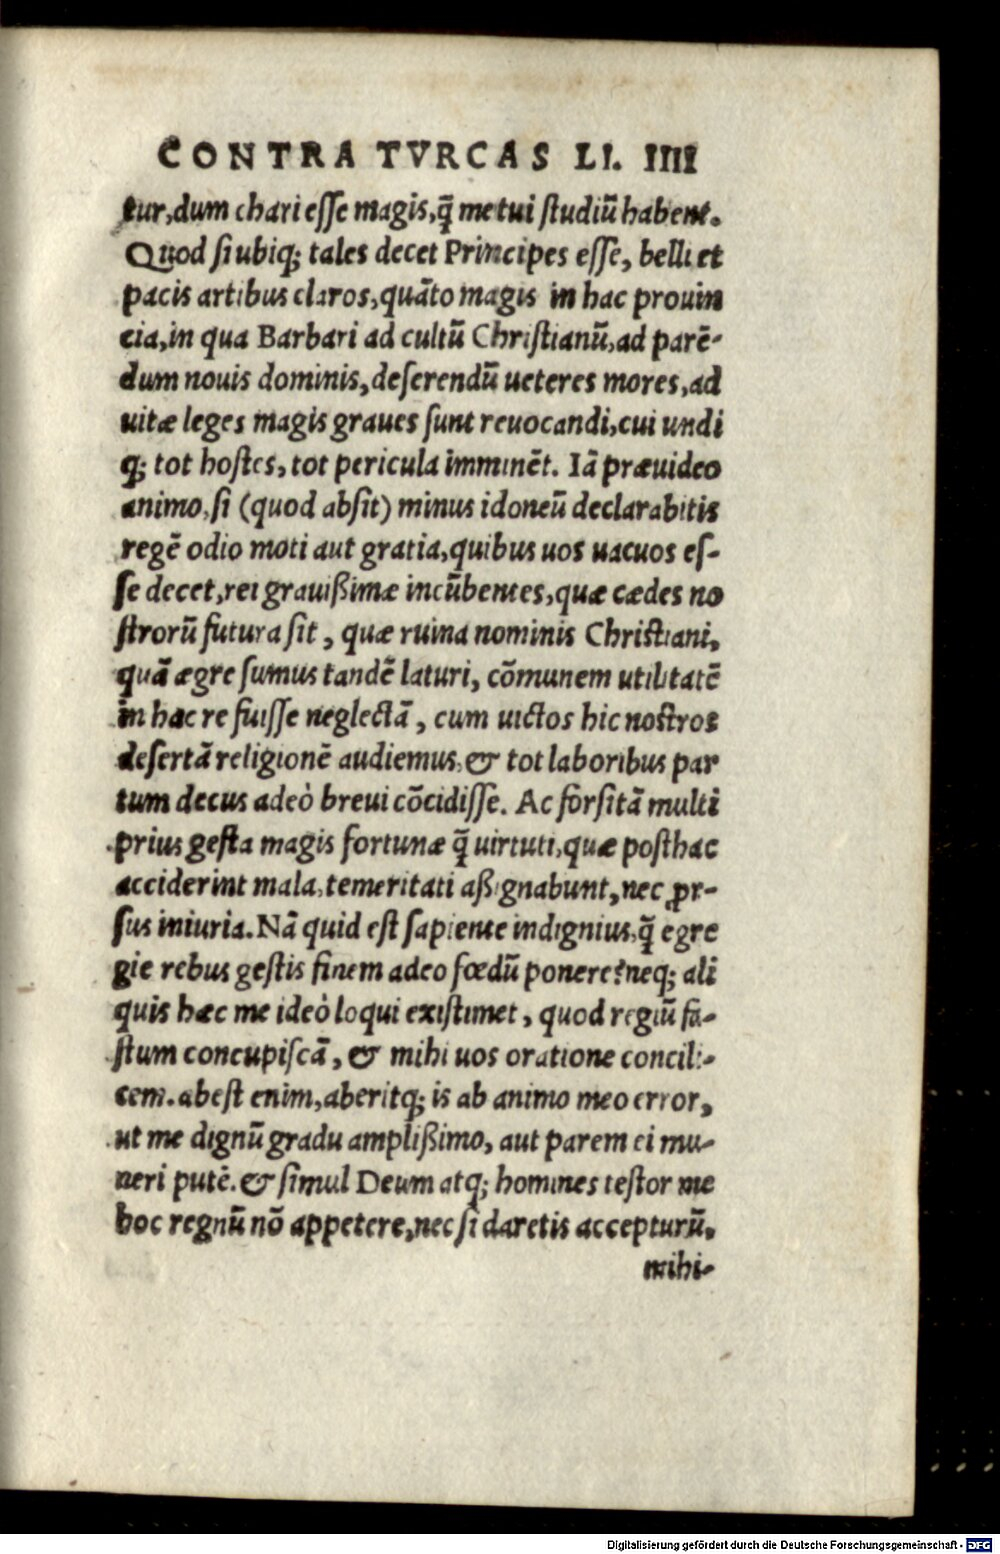 CONTRA TVRCAS LI. IIII
tur, dum chari esse magis, q̃ metui studiũ habent.
Quod si ubiq; tales decet Principes esse, belli et
pacis artibus claros, quãto magis in hac prouin
cia, in qua Barbari ad cultũ Christianũ, ad parẽ-
dum nouis dominis, deserendũ ueteres mores, ad
uitæ leges magis graues sunt reuocandi, cui undi
q; tot hostes, tot pericula imminẽt. Iã præuideo
animo, si (quod absit) minus idoneũ declarabitis
regẽ odio moti aut gratia, quibus uos uacuos es-
se decet, rei grauißimæ incũbentes, quæ cædes no
strorũ futura sit, quæ ruina nominis Christiani,
quã ægre sumus tandẽ laturi, cõmunem utilitatẽ
in hac re fuisse neglectã, cum uictos hic nostros
desertã religionẽ audiemus, & tot laboribus par
tum decus adeò breui cõcidisse. Ac forsitã multi
prius gesta magis fortunæ q̃ uirtuti, quæ posthac
acciderint mala, temeritati aßignabunt, nec ꝓr-
sus iniuria. Nã quid est sapiente indignius, q̃ egre
gie rebus gestis finem adeo fœdũ ponere? neq; ali
quis hæc me ideò loqui existimet, quod regiũ fa-
stum concupiscã, & mihi uos oratione concili-
cem. abest enim, aberitq; is ab animo meo error,
ut me dignũ gradu amplißimo, aut parem ei mu-
neri putẽ. & simul Deum atq; homines testor me
hoc regnũ nõ appetere, nec si daretis accepturũ,
mihi-
Digitalisierung gefördert durch die Deutsche Forschungsgemeinschaft - DFG